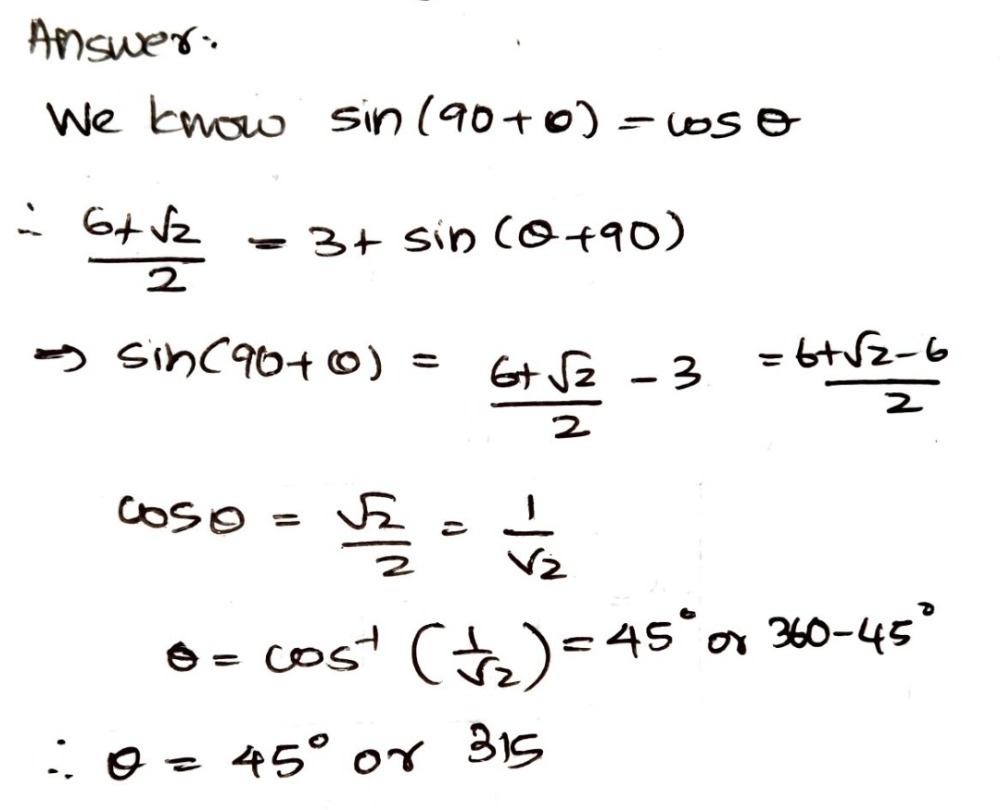 Answer:
We know sin(90+θ) = cos θ
∴ (6+√2)/2 = 3+ sin (θ+90)
⇒ sin(90+θ) = (6+√2)/2 - 3 = (6+√2-6)/2
cosθ = √2/2 = 1/√2
θ = cos⁻¹ (1/√2) = 45° or 360-45°
∴ θ = 45° or 315